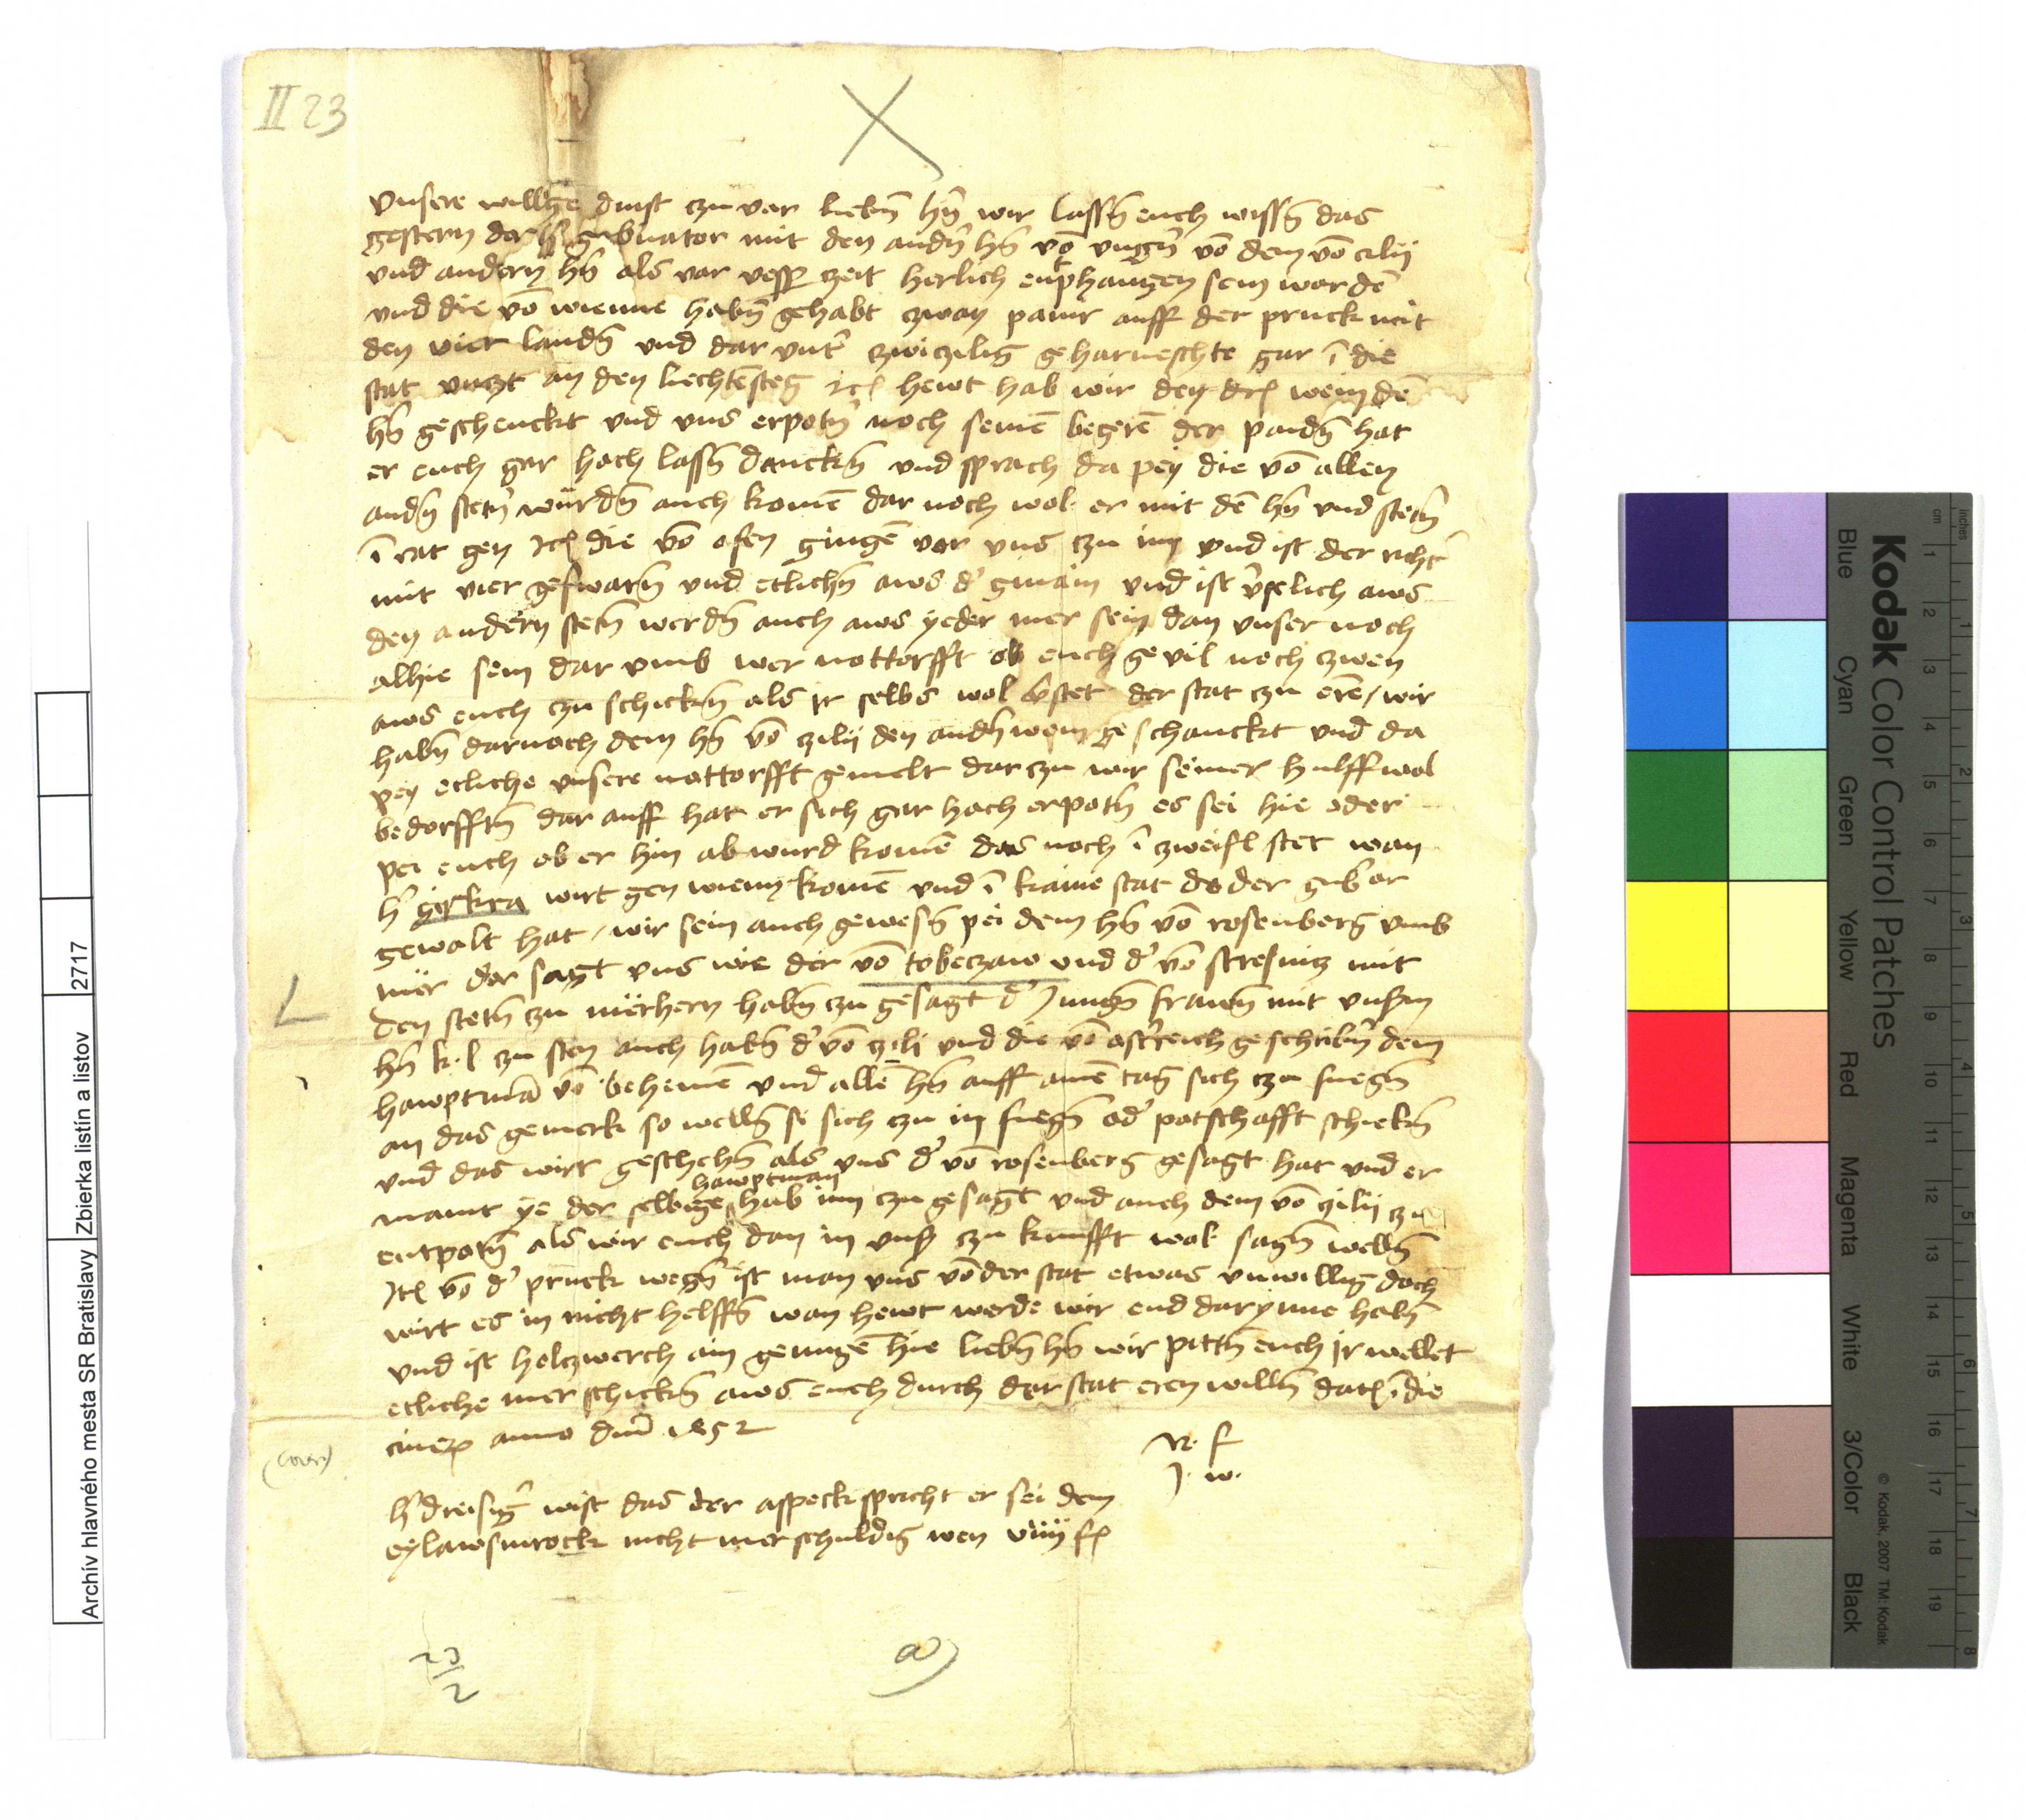 II 23
Unsere willige dinst czu vor liebn̄ hn̄ wir lassn̄ euch wissn̄ das
gestern der h' gub'nator mit den andn̄ hn̄ vō vngn̄ vō dem vō cilij
vnd andern hn̄ als vor vesp' zeit herlich enphangen sein wordē
vnd die vō wienne habn̄ gehabt zwen panir auff der pruck mit
den vier landn̄ vnd dar vnt' geharneschte gar ī die
stat vnczt an den liechtēsteg Itē hewt hab wir den wein dē
hn̄ geschenckt vnd vns erpotn̄ noch seinē begerē der paidn̄ hat
er euch gar hoch lassn̄ danckn̄ vnd sprach da pey die vō allen
andn̄ stetn̄ würdn̄ auch komē dar noch wol er mit dē hn̄ vnd stetn̄
ī rat gen Itē die vō ofen gingē vor vns czu im vnd ist der richt'
mit vier gesworn̄ vnd etlichn̄ aws d' gmain vnd ist aws
den andern stetn̄ werdn̄ auch aws yeder mer sein dan vnser noch
alhie sein dar vmb wer nottorfft ob euch gevil noch zwen
aws euch czu schickn̄ als ir selbs wol v'stet der stat czu erē / wir
habn̄ darnoch dem hn̄ vō zilij den andn̄ wein geschanckt vnd da
pey etliche vnsere nottorfft gemelt dar czu wir seiner hulff wol
bedorfftn̄ dar auff hat er sich gar hoch erpotn̄ es sei hie oder
pei euch ob er hin ab wurd komē das noch ī zweifl stet wan
h' girkra wirt gen wienn komē vnd ī kaine stat do der gub'or
gewalt hat / wir sein auch gewesn̄ pei dem hn̄ vō rosenberg vmb
mër der sagt vns wie der vō tobeczaw vnd d' vō stresnicz mit
den stetn̄ czu mërhern habn̄ czu gesagt d' Jungn̄ frawn̄ mit vnsm̄
hn̄ k. l czu sten auch habn̄ d' vō zili vnd die vō ost'reich geschribn̄ dem
hawptmā vō behemē vnd allē hn̄ auff ainē tag sich czu fuegn̄
an das gemerk so welln̄ si sich czu in fuegn̄ od' potschafft schickn̄
vnd das wirt geschehn̄ als vns d' vō rosenberg gesagt hat vnd er
maint ye der selbige hawptman hab im czu gesagt vnd auch dem vō zilij czu
entpotn̄ als wir euch dan in vnsz czu kunfft wol sagn̄ welln̄
Itē vō d' pruck wegn̄ ist man vns vō der stat etwas vnwillig doch
wirt es in nicht helffn̄ wan hewt werde wir end darynne habn̄
vnd ist holczwerch ain genugē hie liebn̄ hn̄ wir pittn̄ euch ir wellet
etliche mer schickn̄ aws euch durch der stat eren willn̄ datē ī die
cinerz anno dnī 1452
N. f
J. w.
h' dreisig' wist das der aspeck spricht er sei dem
eylawsinrock nicht mer schuldig wen viiij
23
2
a)
Archív hlavného mesta SR Bratislavy
Zbierka listín a listov
2717
Kodak Color Control Patches
Blue Cyan Green Yellow Red Magenta White 3/Color Black
© Kodak, 2007 TM: Kodak
inches 1 2 3 4 5 6 7 8
cm 1 2 3 4 5 6 7 8 9 10 11 12 13 14 15 16 17 18 19